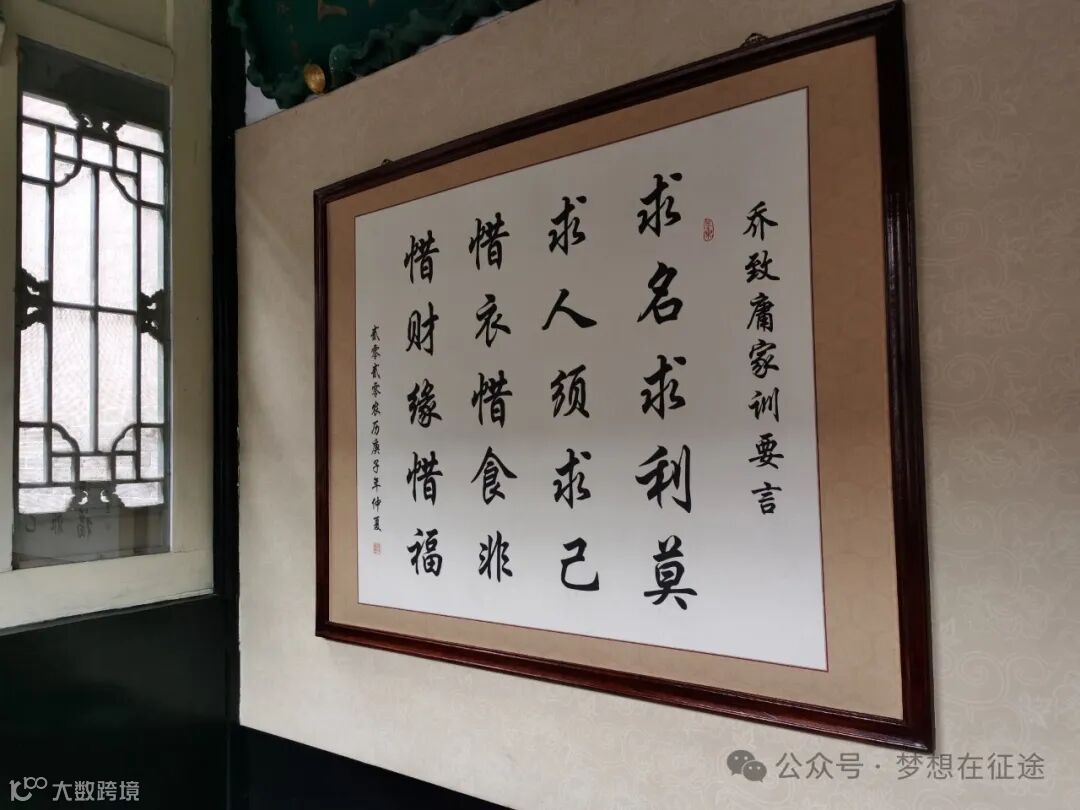 乔致庸家训要言
求名求利莫
求人须求己
惜衣惜食非
惜财缘惜福
贰零贰零农历庚子年仲夏
公众号·梦想在征途
大数跨境